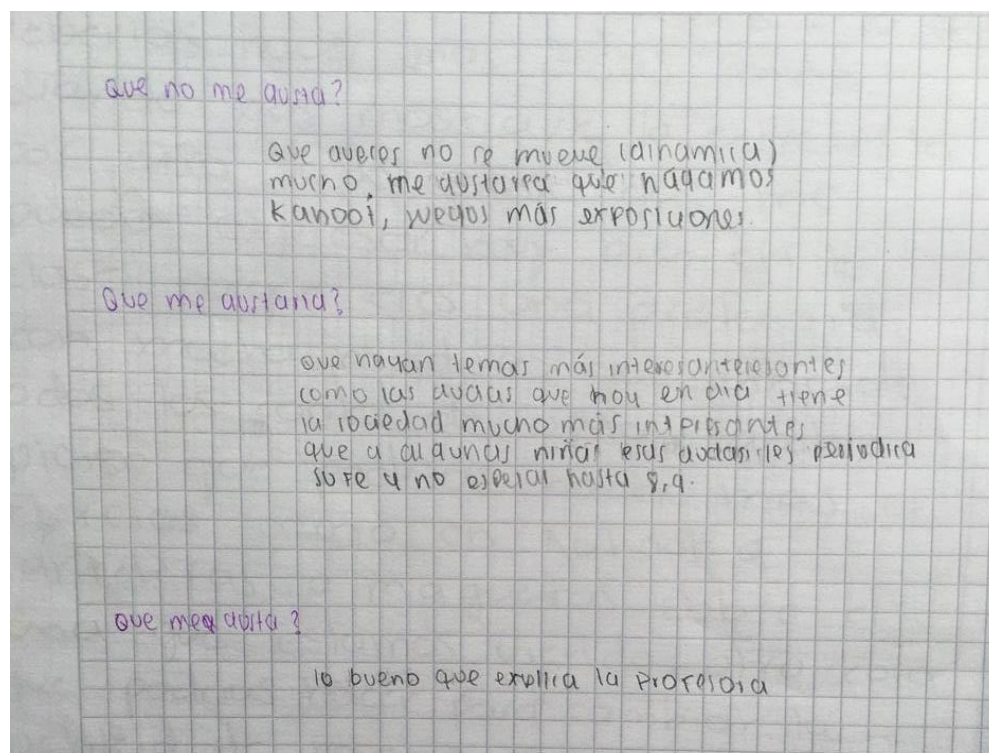 Que no me gusta?
Que aveces no se mueve (dinamica)
mucho, me gustaria que hagamos
Kahoot, juegos más exposiciones.
Que me gustaria?
Que hayan temas más interesantesantes
como las dudas que hoy en dia tiene
la sociedad mucho más interesantes
que a algunas niñas esas dudas les perjudica
su fe y no esperar hasta 8,9.
Que me gusta?
lo bueno que explica la profesora